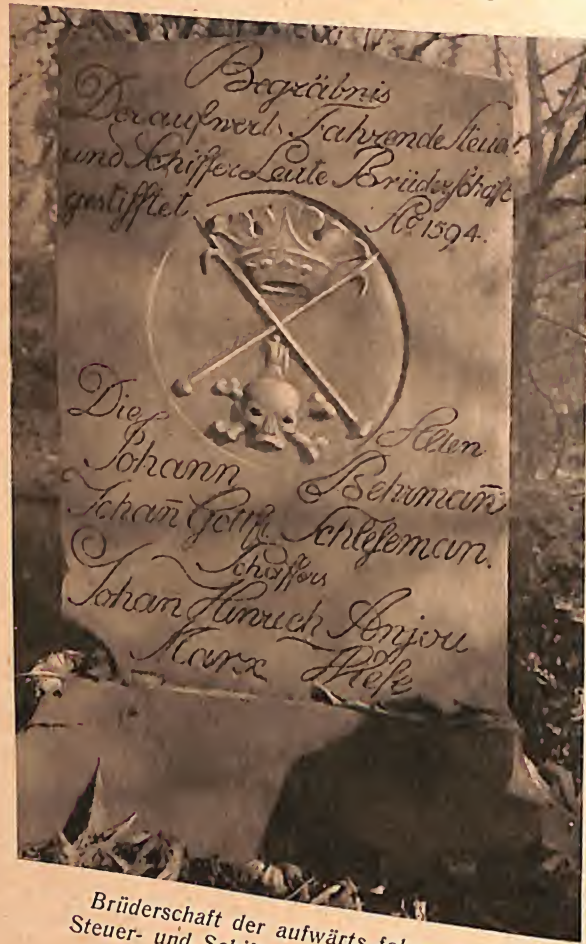 Begräbnis
Der aufwerts Fahrende Steuer
und Schiffer Leute Brüderschaft
gestifftet Aº 1594.
Die Alten
Johann Behrman̄
Johan̄ Gottfr. Schleseman.
Schaffers
Johan Hinrich Anjou
Marx
Brüderschaft der aufwärts
Steuer- und